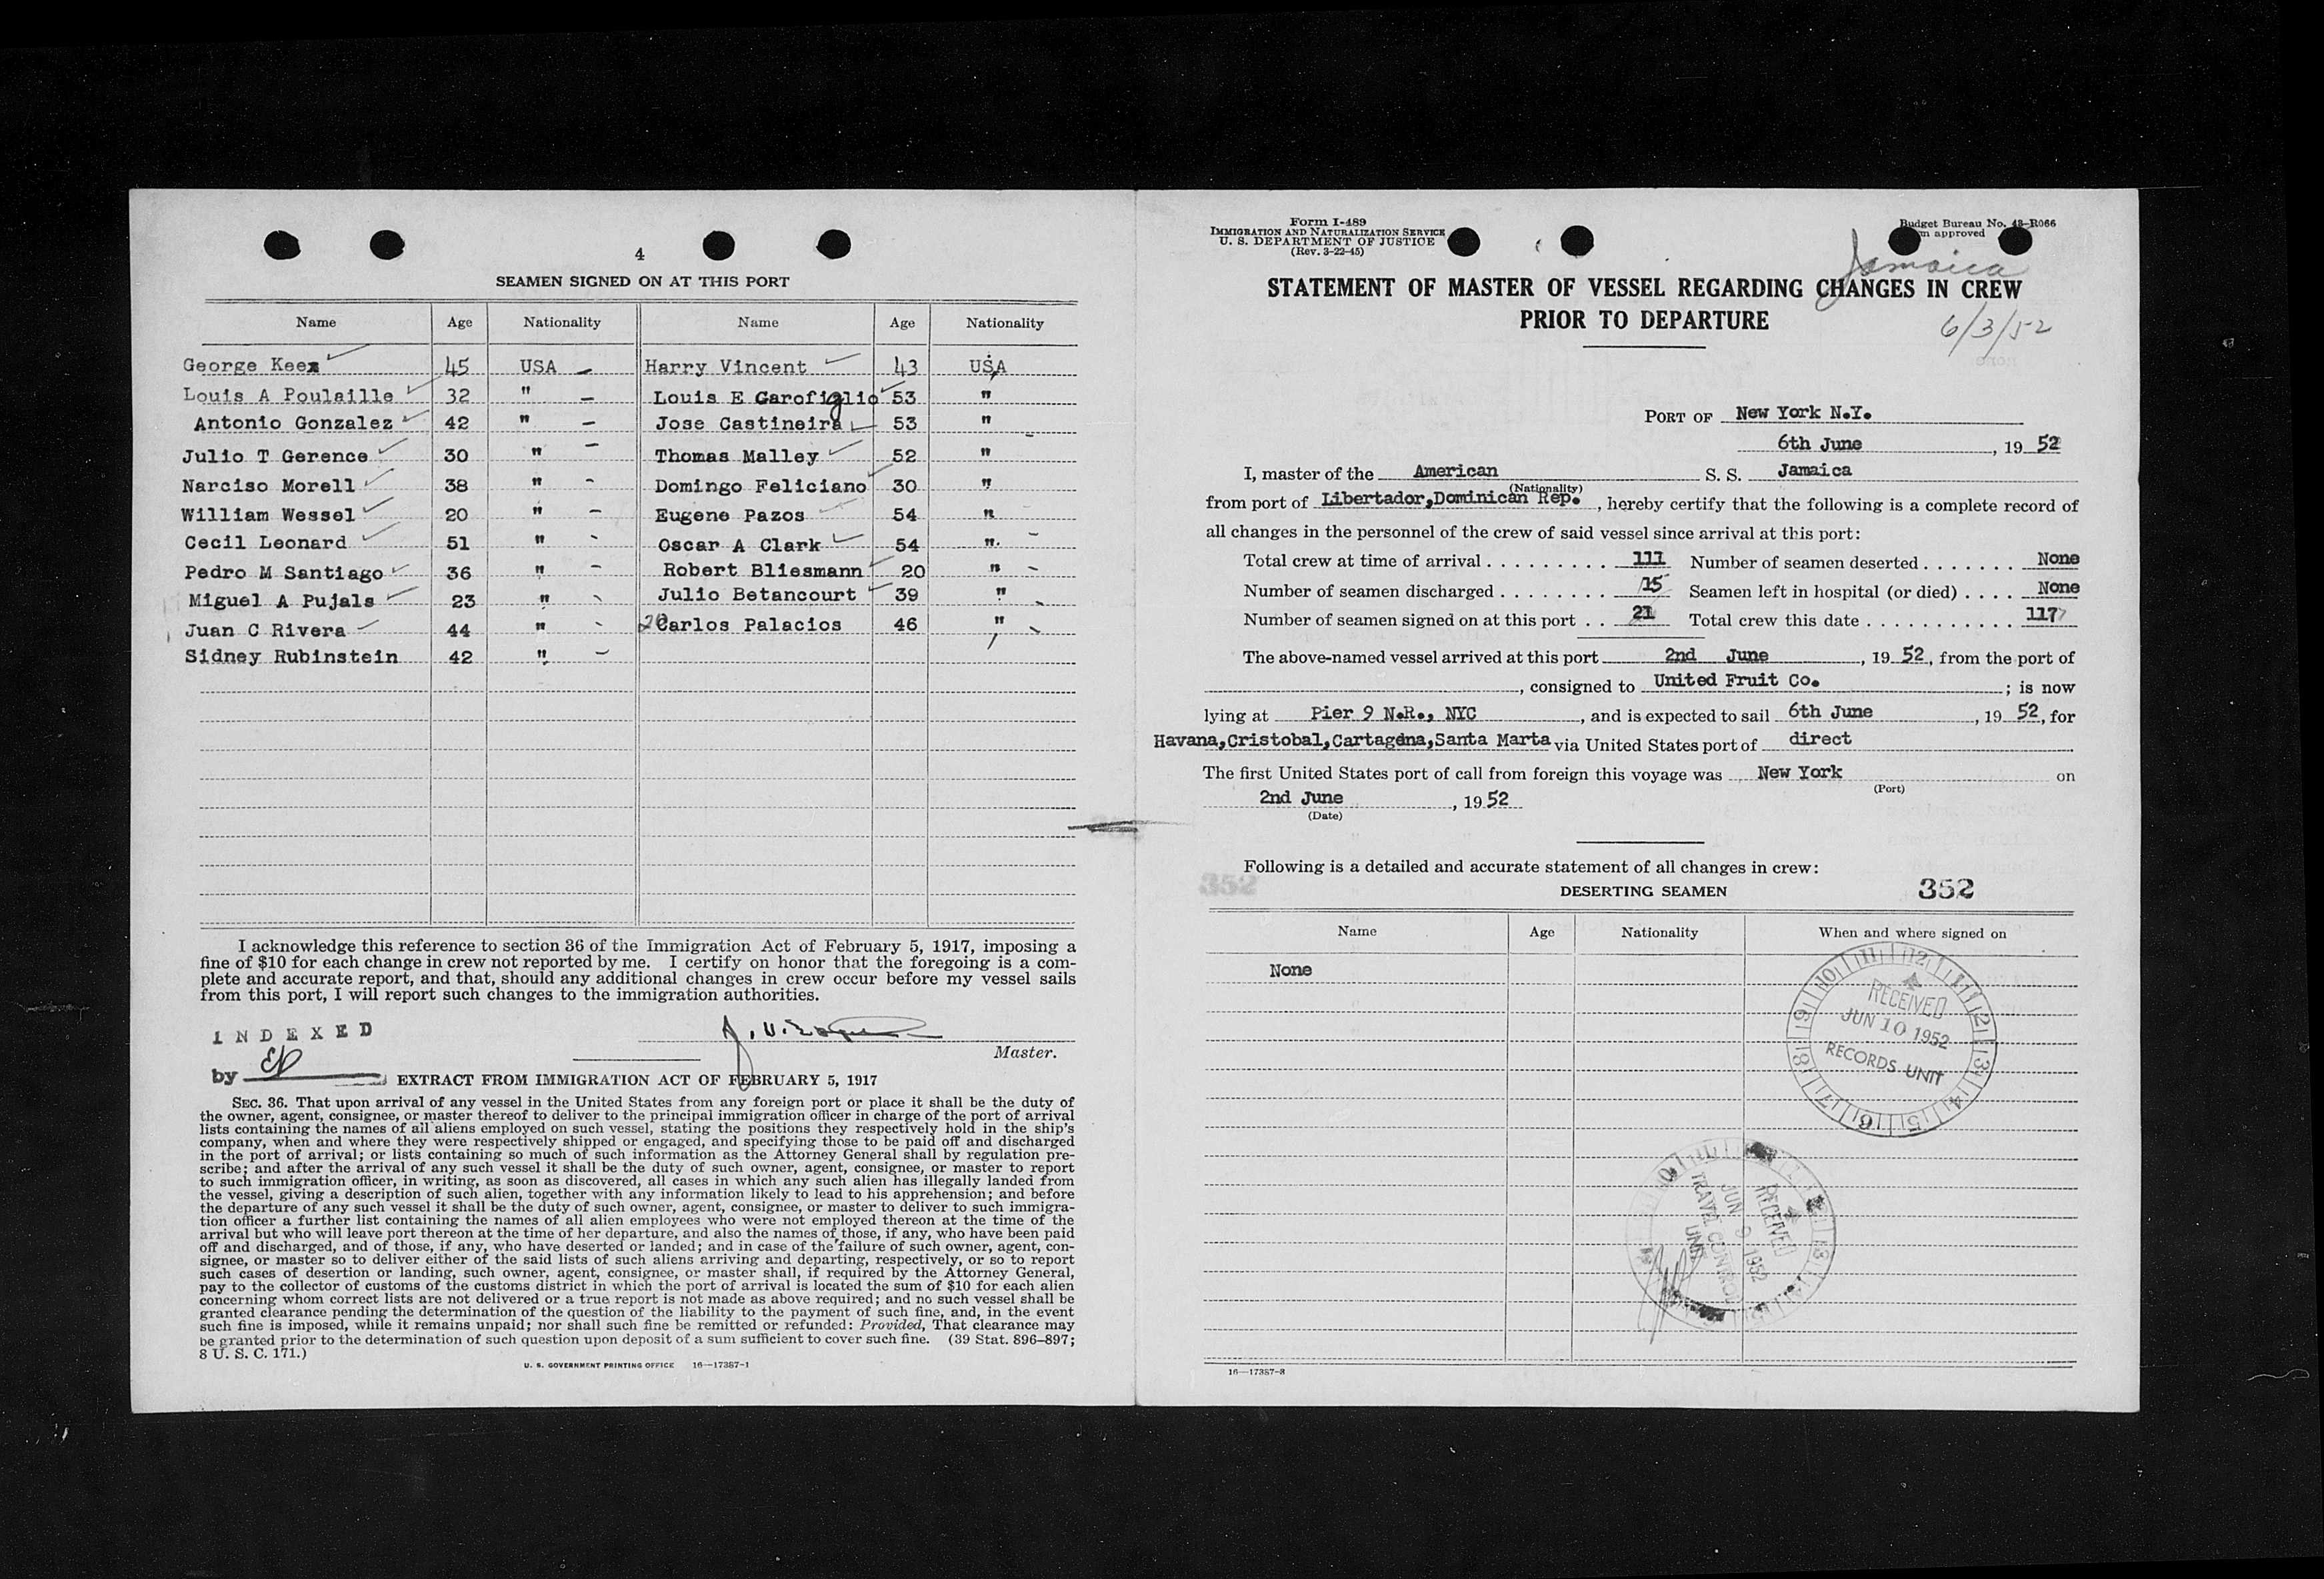 4
SEAMEN SIGNED ON AT THIS PORT
Name Age Nationality Name Age Nationality
George Keex 45 USA Harry Vincent 43 USA
Louis A Poulaille 32 " Louis E Garofiglio 53 "
Antonio Gonzalez 42 " Jose Castineira 53 "
Julio T Gerence 30 " Thomas Malley 52 "
Narciso Morell 38 " Domingo Feliciano 30 "
William Wessel 20 " Eugene Pazos 54 "
Cecil Leonard 51 " Oscar A Clark 54 "
Pedro M Santiago 36 " Robert Bliesmann 20 "
Miguel A Pujals 23 " Julio Betancourt 39 "
Juan C Rivera 44 " Carlos Palacios 46 "
Sidney Rubinstein 42 "
I acknowledge this reference to section 36 of the Immigration Act of February 5, 1917, imposing a
fine of $10 for each change in crew not reported by me. I certify on honor that the foregoing is a com-
plete and accurate report, and that, should any additional changes in crew occur before my vessel sails
from this port, I will report such changes to the immigration authorities.
INDEXED
by
Master.
EXTRACT FROM IMMIGRATION ACT OF FEBRUARY 5, 1917
SEC. 36. That upon arrival of any vessel in the United States from any foreign port or place it shall be the duty of
the owner, agent, consignee, or master thereof to deliver to the principal immigration officer in charge of the port of arrival
lists containing the names of all aliens employed on such vessel, stating the positions they respectively hold in the ship's
company, when and where they were respectively shipped or engaged, and specifying those to be paid off and discharged
in the port of arrival; or lists containing so much of such information as the Attorney General shall by regulation pre-
scribe; and after the arrival of any such vessel it shall be the duty of such owner, agent, consignee, or master to report
to such immigration officer, in writing, as soon as discovered, all cases in which any such alien has illegally landed from
the vessel, giving a description of such alien, together with any information likely to lead to his apprehension; and before
the departure of any such vessel it shall be the duty of such owner, agent, consignee, or master to deliver to such immigra-
tion officer a further list containing the names of all alien employees who were not employed thereon at the time of the
arrival but who will leave port thereon at the time of her departure, and also the names of those, if any, who have been paid
off and discharged, and of those, if any, who have deserted or landed; and in case of the failure of such owner, agent, con-
signee, or master so to deliver either of the said lists of such aliens arriving and departing, respectively, or so to report
such cases of desertion or landing, such owner, agent, consignee, or master shall, if required by the Attorney General,
pay to the collector of customs of the customs district in which the port of arrival is located the sum of $10 for each alien
concerning whom correct lists are not delivered or a true report is not made as above required; and no such vessel shall be
granted clearance pending the determination of the question of the liability to the payment of such fine, and, in the event
such fine is imposed, while it remains unpaid; nor shall such fine be remitted or refunded: Provided, That clearance may
be granted prior to the determination of such question upon deposit of a sum sufficient to cover such fine. (39 Stat. 896–897;
8 U. S. C. 171.)
U. S. GOVERNMENT PRINTING OFFICE 16—17387-1
Form I-489
IMMIGRATION AND NATURALIZATION SERVICE
U. S. DEPARTMENT OF JUSTICE
(Rev. 3-22-45)
Budget Bureau No. 43-R066
approved
Jamaica
STATEMENT OF MASTER OF VESSEL REGARDING CHANGES IN CREW
PRIOR TO DEPARTURE
6/3/52
PORT OF New York N.Y.
6th June, 1952
I, master of the American S. S. Jamaica
(Nationality)
from port of Libertador,Dominican Rep., hereby certify that the following is a complete record of
all changes in the personnel of the crew of said vessel since arrival at this port:
Total crew at time of arrival . . . . . . . . . 111 Number of seamen deserted . . . . . . . None
Number of seamen discharged . . . . . . . . 15 Seamen left in hospital (or died) . . . . None
Number of seamen signed on at this port . . 21 Total crew this date . . . . . . . . . . . . 117
The above-named vessel arrived at this port 2nd June, 1952, from the port of
, consigned to United Fruit Co. ; is now
lying at Pier 9 N.R., NYC, and is expected to sail 6th June, 1952, for
Havana,Cristobal,Cartagena,Santa Marta via United States port of direct
The first United States port of call from foreign this voyage was New York on
(Port)
2nd June, 1952
(Date)
Following is a detailed and accurate statement of all changes in crew:
352
DESERTING SEAMEN
352
Name Age Nationality When and where signed on
None
RECEIVED
JUN 10 1952
RECORDS UNIT
RECEIVED
JUN 9 1952
TRAVEL CONTROL
UNIT
16—17387-3